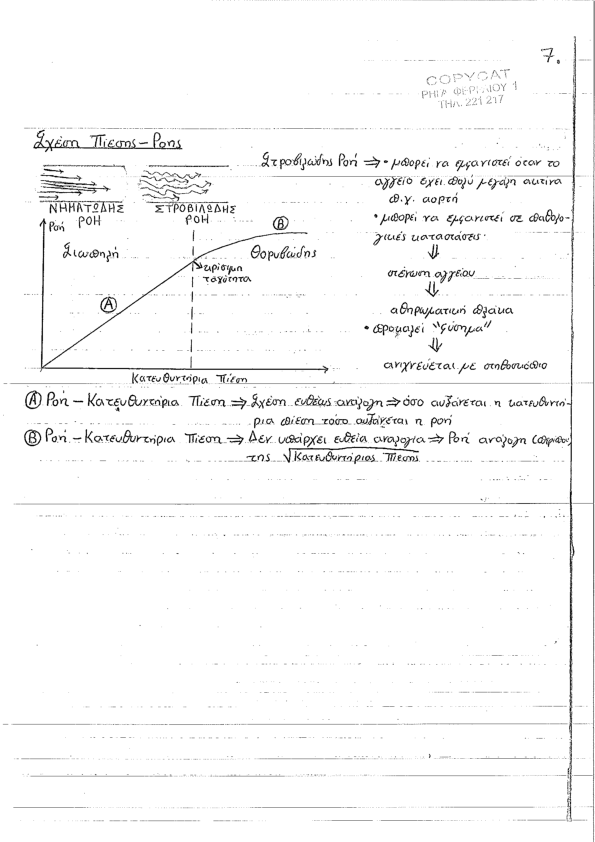 7.
COPYCAT
ΤΗΛ. 221 217
Σχέση Πίεσης - Ροής
ΝΗΜΑΤΩΔΗΣ ΡΟΗ
ΣΤΡΟΒΙΛΩΔΗΣ ΡΟΗ
Ροή
Σιωπηλή
Θορυβώδης
Α
Β
κρίσιμη
ταχύτητα
Κατευθυντήρια Πίεση
Στροβιλώδης Ροή ⇒ • μπορεί να εμφανιστεί όταν το
αγγείο έχει πολύ μεγάλη ακτίνα
π.χ. αορτή
• μπορεί να εμφανιστεί σε παθολο-
γικές καταστάσεις
⇓
στένωση αγγείου
⇓
αθηρωματική πλάκα
• προκαλεί "φύσημα"
⇓
ανιχνεύεται με στηθοσκόπιο
Α Ροή - Κατευθυντήρια Πίεση ⇒ Σχέση ευθέως ανάλογη ⇒ όσο αυξάνεται η κατευθυντή-
ρια πίεση τόσο αυξάνεται η ροή
Β Ροή - Κατευθυντήρια Πίεση ⇒ Δεν υπάρχει ευθεία αναλογία ⇒ Ροή ανάλογη
της √Κατευθυντήριας Πίεσης